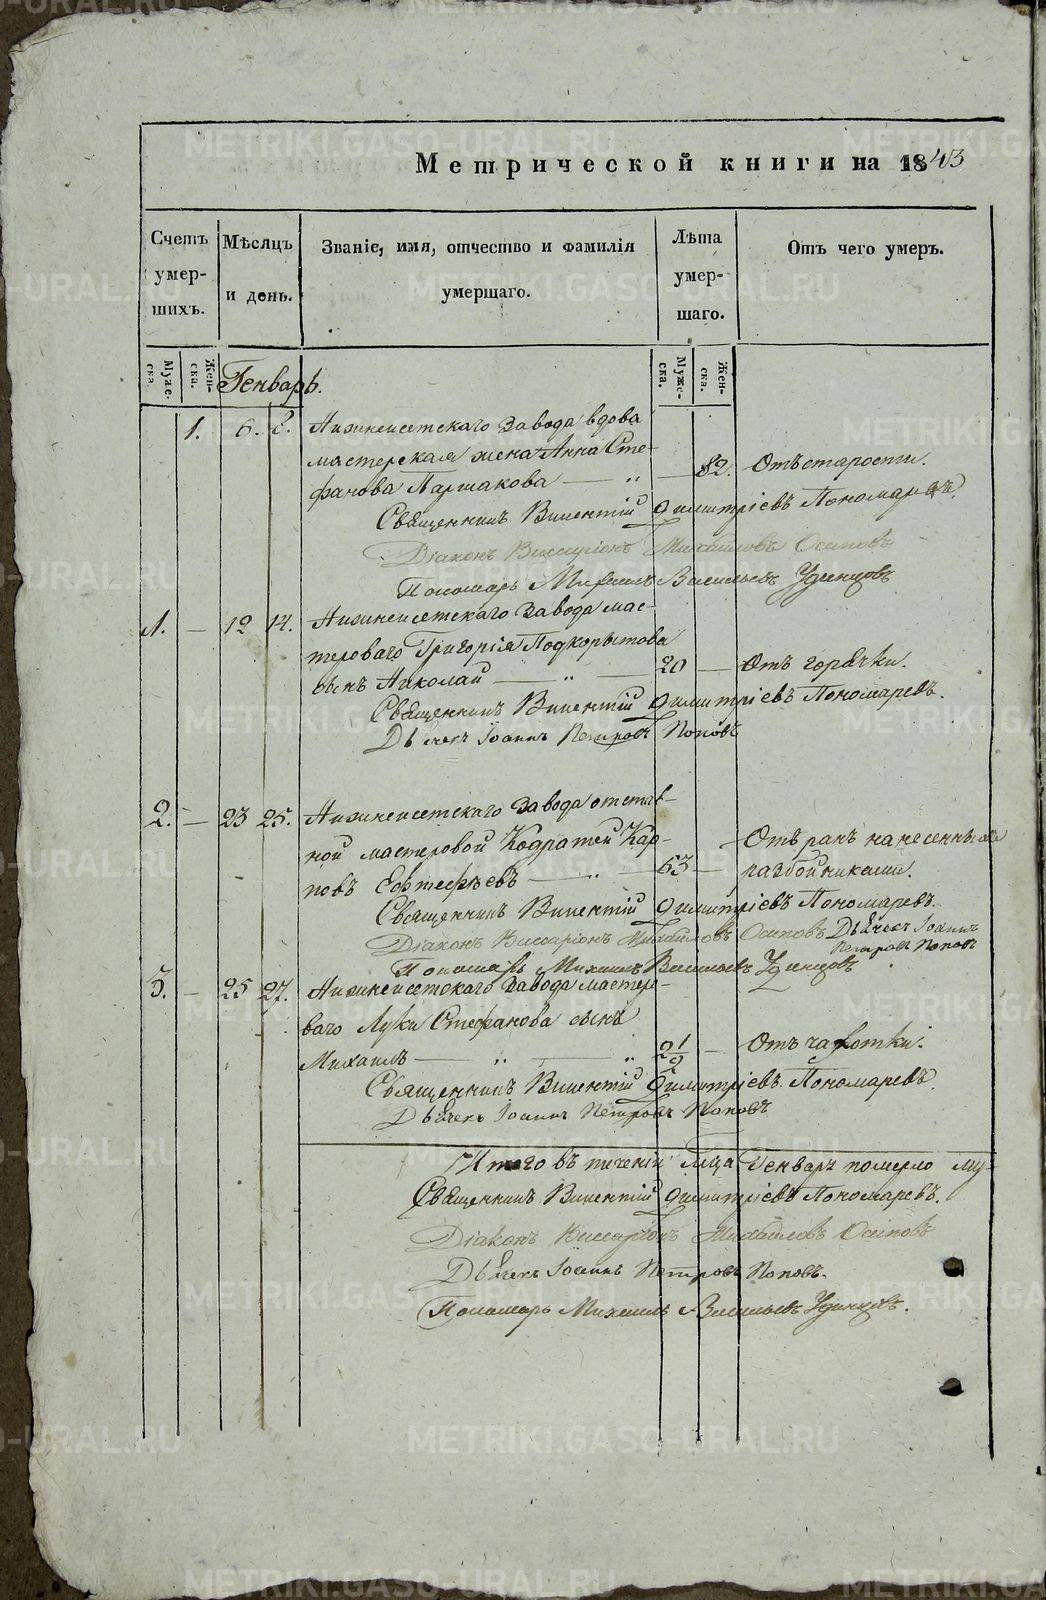 Метрической книги на 1843
Счетъ умерших.
Мѣсяцъ и день.
Званіе, имя, отчество и фамилія умершаго.
Лѣта умершаго.
Отъ чего умеръ.
Муже-ска. Жен-ска.
Генварь.
Муже-ска. Жен-ска.
1. 6. 8. Нижнеисетскаго Завода вдова
мастерская жена Анна Сте-
фанова Паршакова — „ — 82. Отъ старости.
Священникъ Викентій Димитріевъ Пономаревъ.
Діаконъ Виссаріонъ Михайловъ Осиповъ
Пономарь Михаилъ Васильевъ Удинцовъ
1. — 12 14. Нижнеисетскаго Завода мас-
тероваго Григорія Подкорытова
сынъ Николай — „ — 20 — Отъ горячки.
Священникъ Викентій Димитріевъ Пономаревъ.
Дьячекъ Іоаннъ Петровъ Поповъ
2. — 23 25. Нижнеисетскаго Завода отстав-
ной мастеровой Кодратей Кар-
повъ Евтефѣевъ — „ — 63 — Отъ ранъ нанесенныхъ
разбойниками.
Священникъ Викентій Димитріевъ Пономаревъ.
Діаконъ Виссаріонъ Михайловъ Осиповъ Дьячекъ Іоаннъ
Петровъ Поповъ
Пономарь Михаилъ Васильевъ Удинцовъ
3. — 25 27. Нижнеисетскаго Завода мастеро-
ваго Луки Стефанова сынъ
Михаилъ — „ — „ 2 1/2 — Отъ чахотки.
Священникъ Викентій Димитріевъ Пономаревъ.
Дьячекъ Іоаннъ Петровъ Поповъ
Итого въ теченіи мца Генваря померло му-
Священникъ Викентій Димитріевъ Пономаревъ.
Діаконъ Виссаріонъ Михайловъ Осиповъ
Дьячекъ Іоаннъ Петровъ Поповъ.
Пономарь Михаилъ Васильевъ Удинцовъ.
METRIKI.GASO-URAL.RU